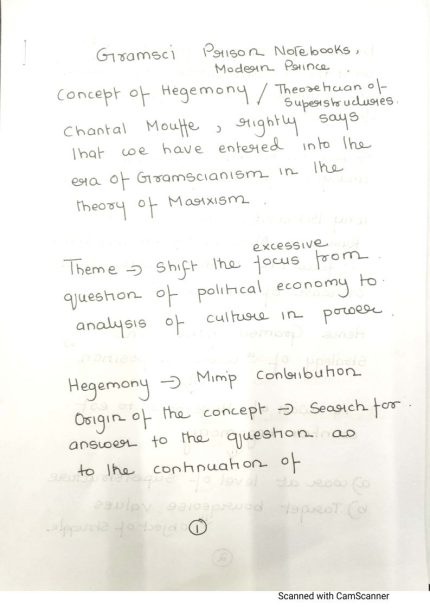 Gramsci Prison Notebooks,
Modern Prince.
Concept of Hegemony / Theoretician of
Superstructures.
Chantal Mouffe, rightly says
that we have entered into the
era of Gramscianism in the
theory of Marxism.
Theme → shift the excessive focus from
question of political economy to
analysis of culture in power.
Hegemony → Mimp contribution
Origin of the concept → Search for
answer to the question as
to the continuation of
1
Scanned with CamScanner